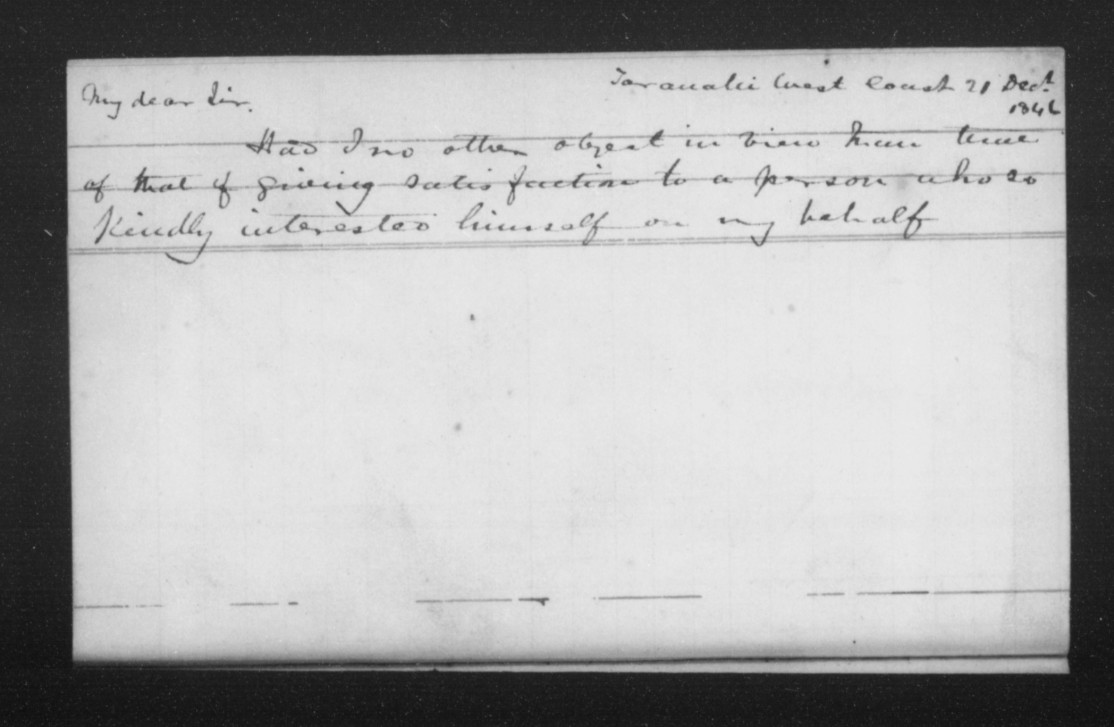 Taranaki West Coast 21 Decr.
184
My dear Sir.
Had I no other object in view than
of that of giving satisfaction to a person who so
kindly interested himself on my behalf